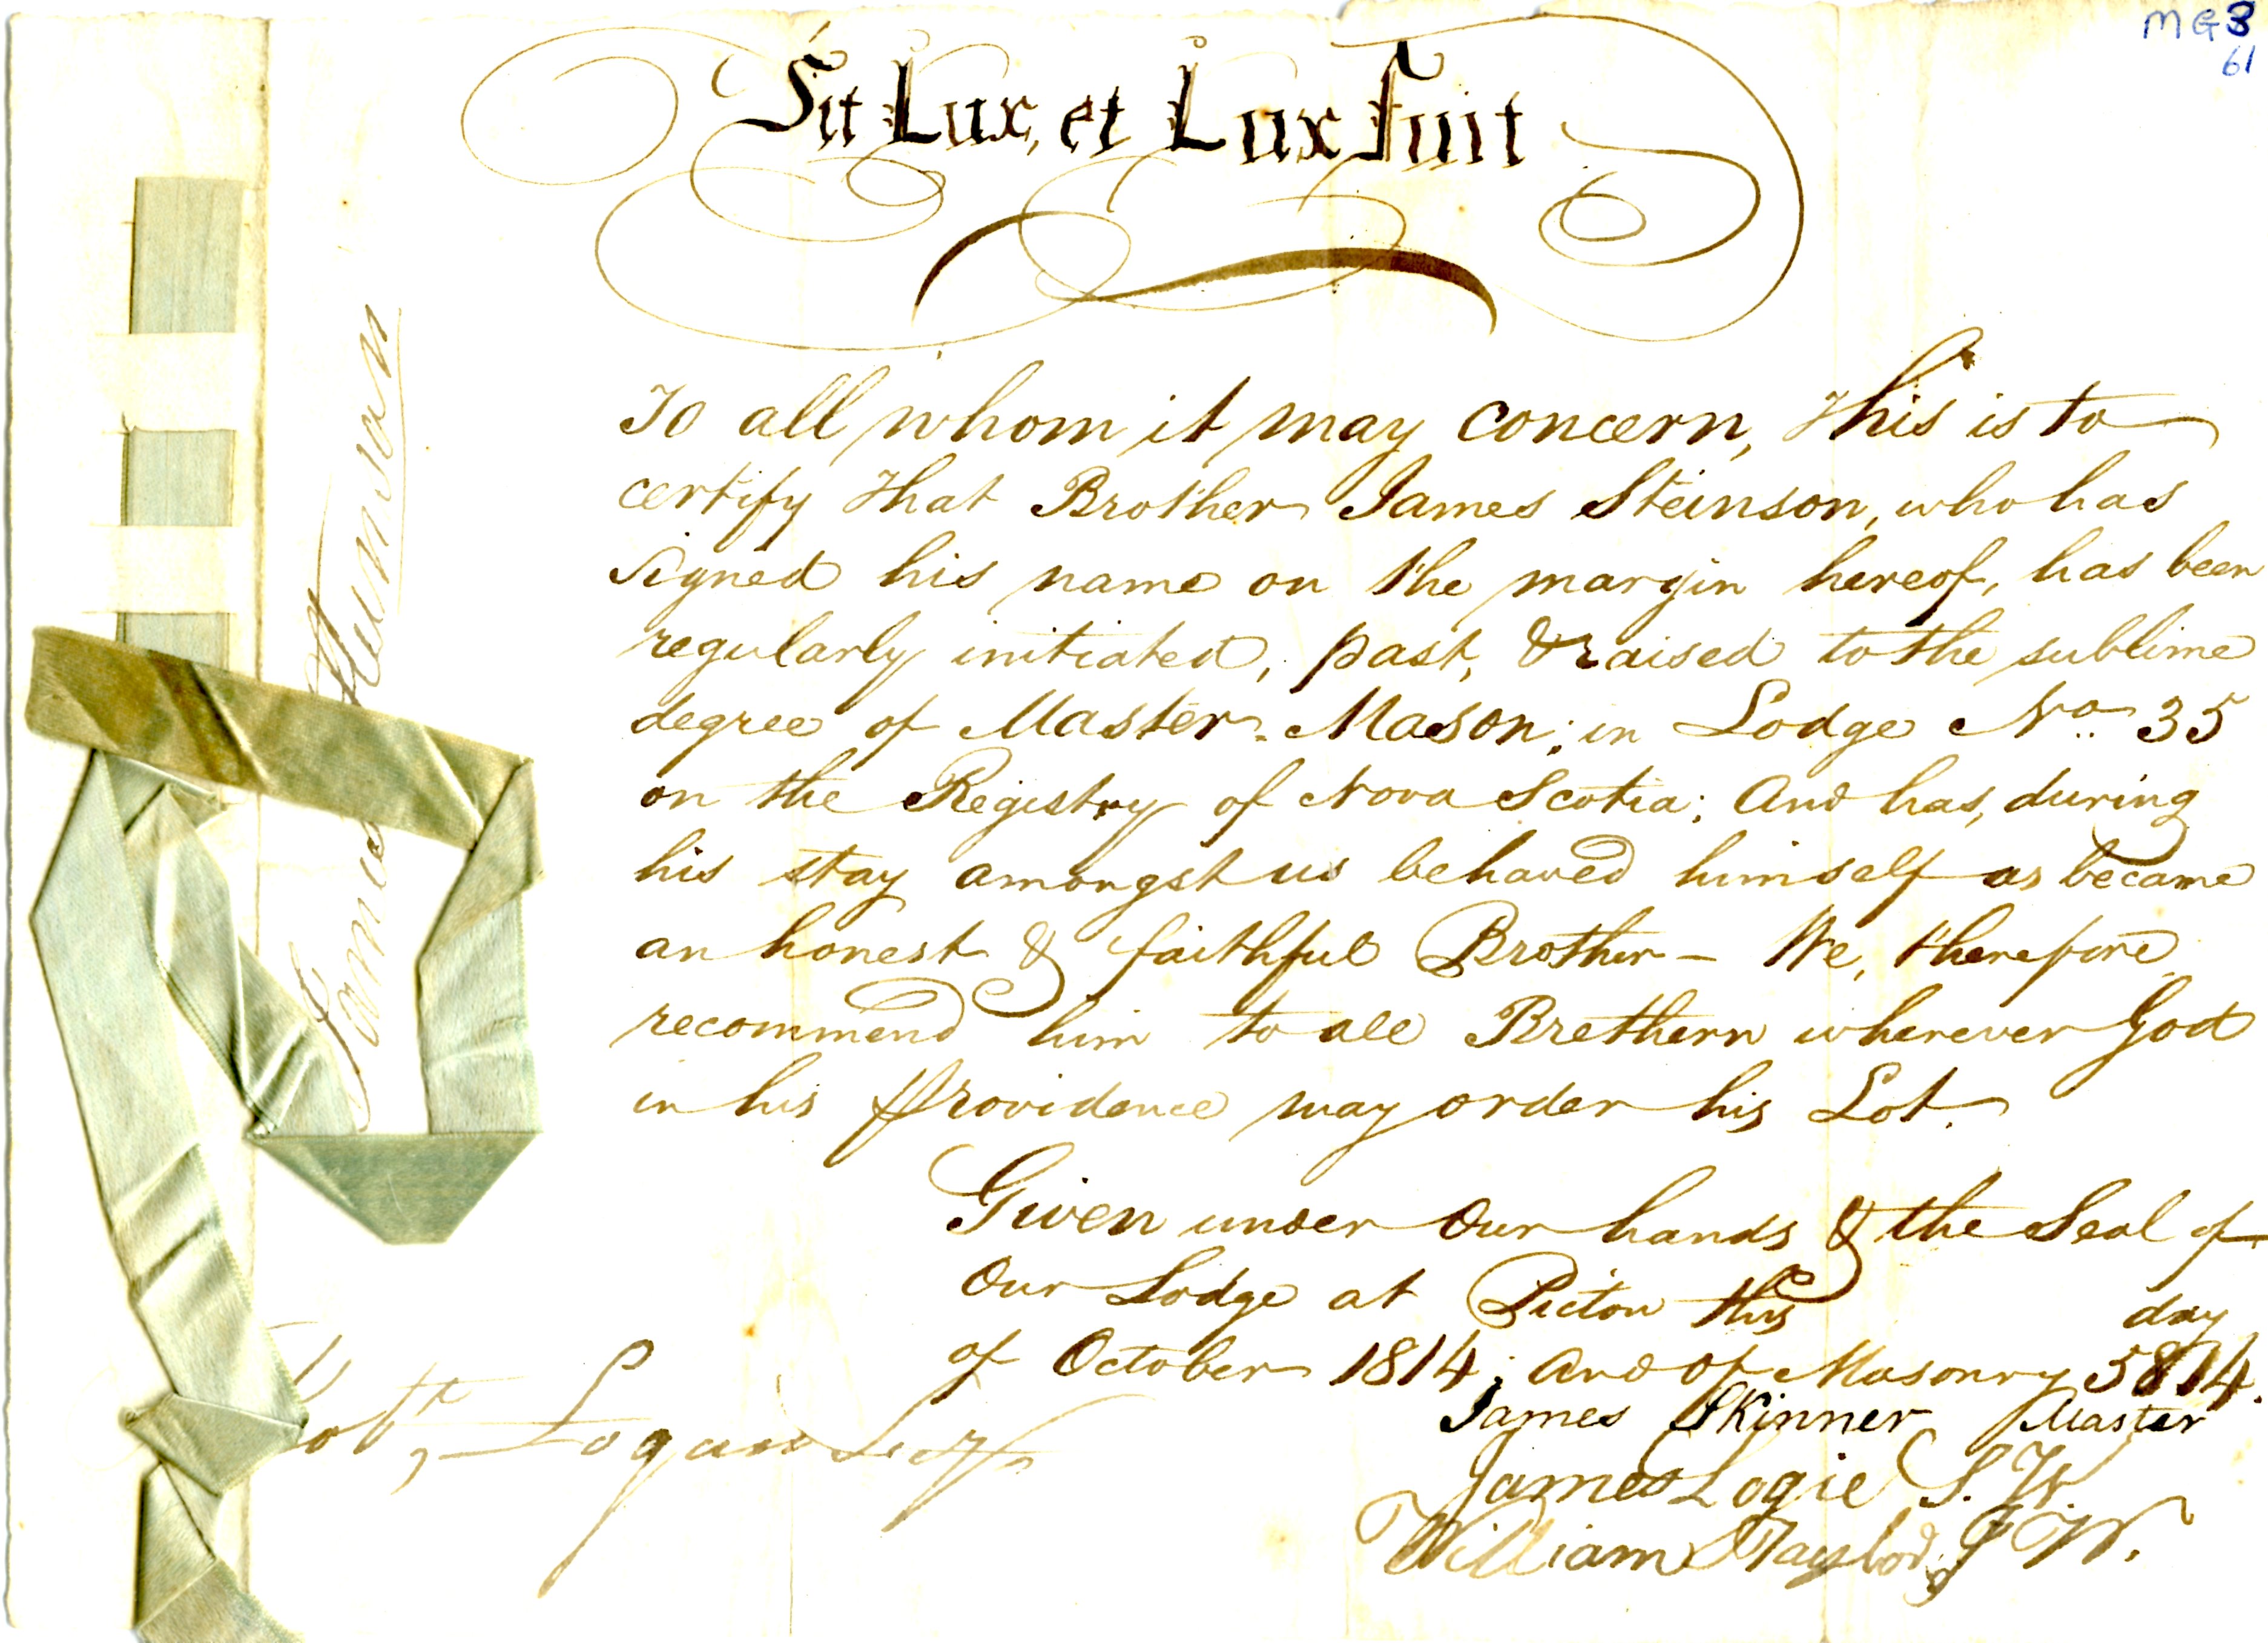 MG3
61
Sit Lux, et Lux fuit
To all whom it may concern, This is to
certify that Brother James Steinson, who has
signed his name on the margin hereof, has been
regularly initiated, past, & raised to the sublime
degree of Master Mason; in Lodge No. 35
on the Registry of Nova Scotia; And has, during
his stay amongst us behaved himself as became
an honest & faithful Brother – We, therefore
recommend him to all Brethern wherever God
in his Providence may order his Lot.
Given under Our hands & the Seal of
Our Lodge at Picton this day
of October 1814; And of Masonry 5814.
James Skinner Master
James Logie S. W
William Taylor J W.
Logan Secy
James